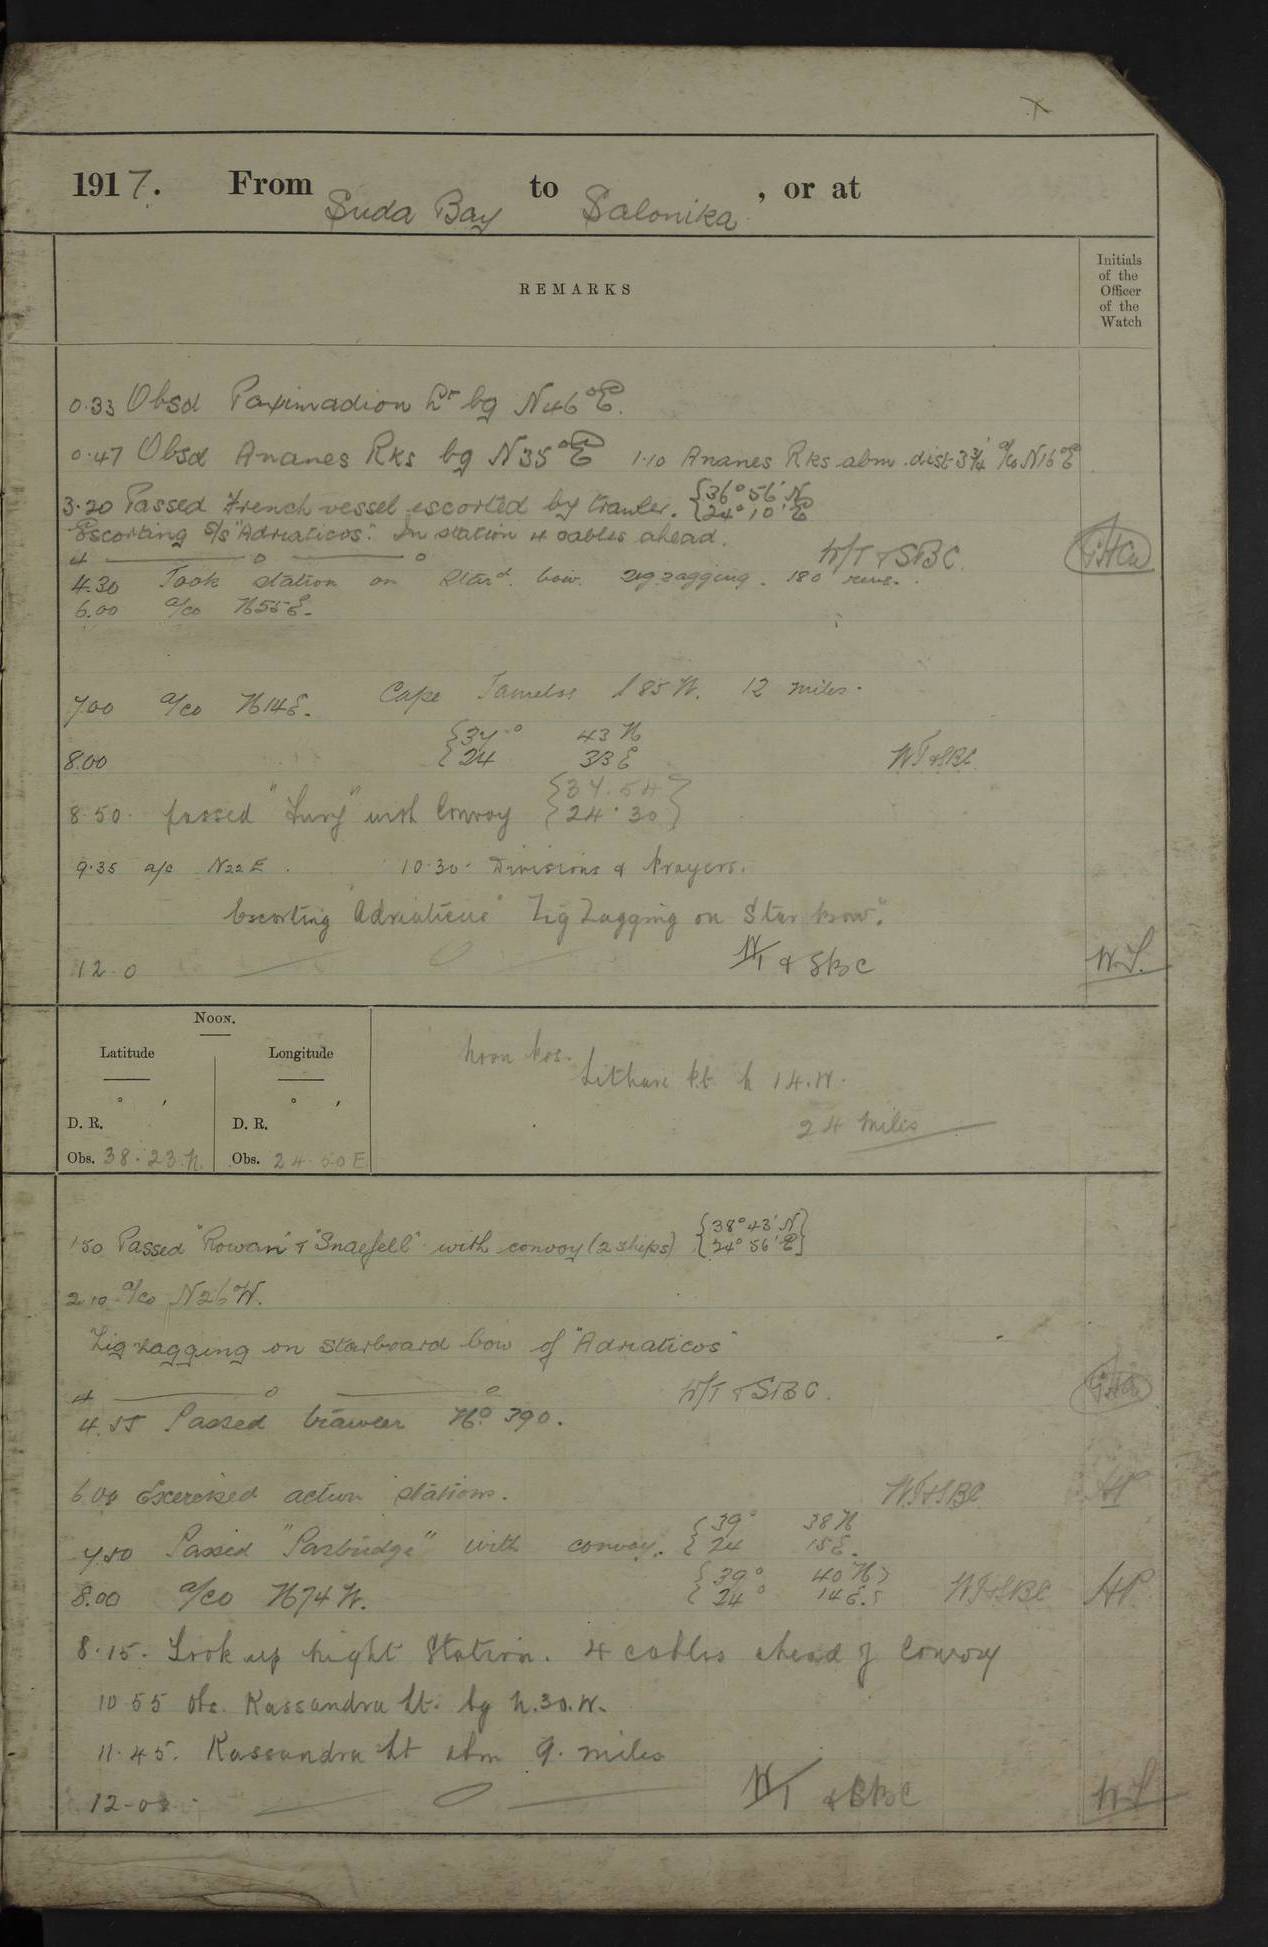 X
1917. From Suda Bay to Salonika, or at
REMARKS
Initials of the Officer of the Watch
0.33 Obsd Paximadion Lt bg N46°E.
0.47 Obsd Ananes Rks bg N35°E 1.10 Ananes Rks abm. dist 3¾' a/co N16°E
3.20 Passed French vessel escorted by trawler. {36°56'N 24°10'E
Escorting S/S "Adriaticos". In station 4 cables ahead.
4 W/T & SBC.
4.30 Took station on Stard. bow. zig zagging. 180 revs.
6.00 a/co N55E.
7.00 a/co N14E. Cape Tamelos S85W. 12 miles.
8.00 {37° 43N 24 33E WT&SBC
8.50. passed " " with Convoy {37.54 24.30}
9.35 a/c N22E. 10.30. Divisions & Prayers.
Escorting "Adriaticus" Zig Zagging on Star bow.
12.0 W/T & SBC W.S.
NOON.
Latitude Longitude
° , ° ,
D. R. D. R.
Obs. 38.23.N. Obs. 24.50E
Noon Pos. Lithari Pt. N 14.W.
24 miles
1.50 Passed "Rowan" & "Snaefell" with convoy (2 ships) {38°43'N 24°56'E}
2.10 a/co N26W.
Zig zagging on starboard bow of "Adriaticos"
4 W/T & SBC.
4.55 Passed trawler No. 390.
6.00 Exercised action stations. WT&SBC HP
7.50 Passed "Partridge" with convoy. {39° 38N 24 15E.
8.00 a/co N74W. {39° 40N 24° 14E.} WT&SBC HP.
8.15. Took up night Station. 4 cables ahead of Convoy
10.55 obs. Kassandra Lt. bg N.30.W.
11.45. Kassandra Lt abm 9. miles
12-00. W/T & SBC W.S